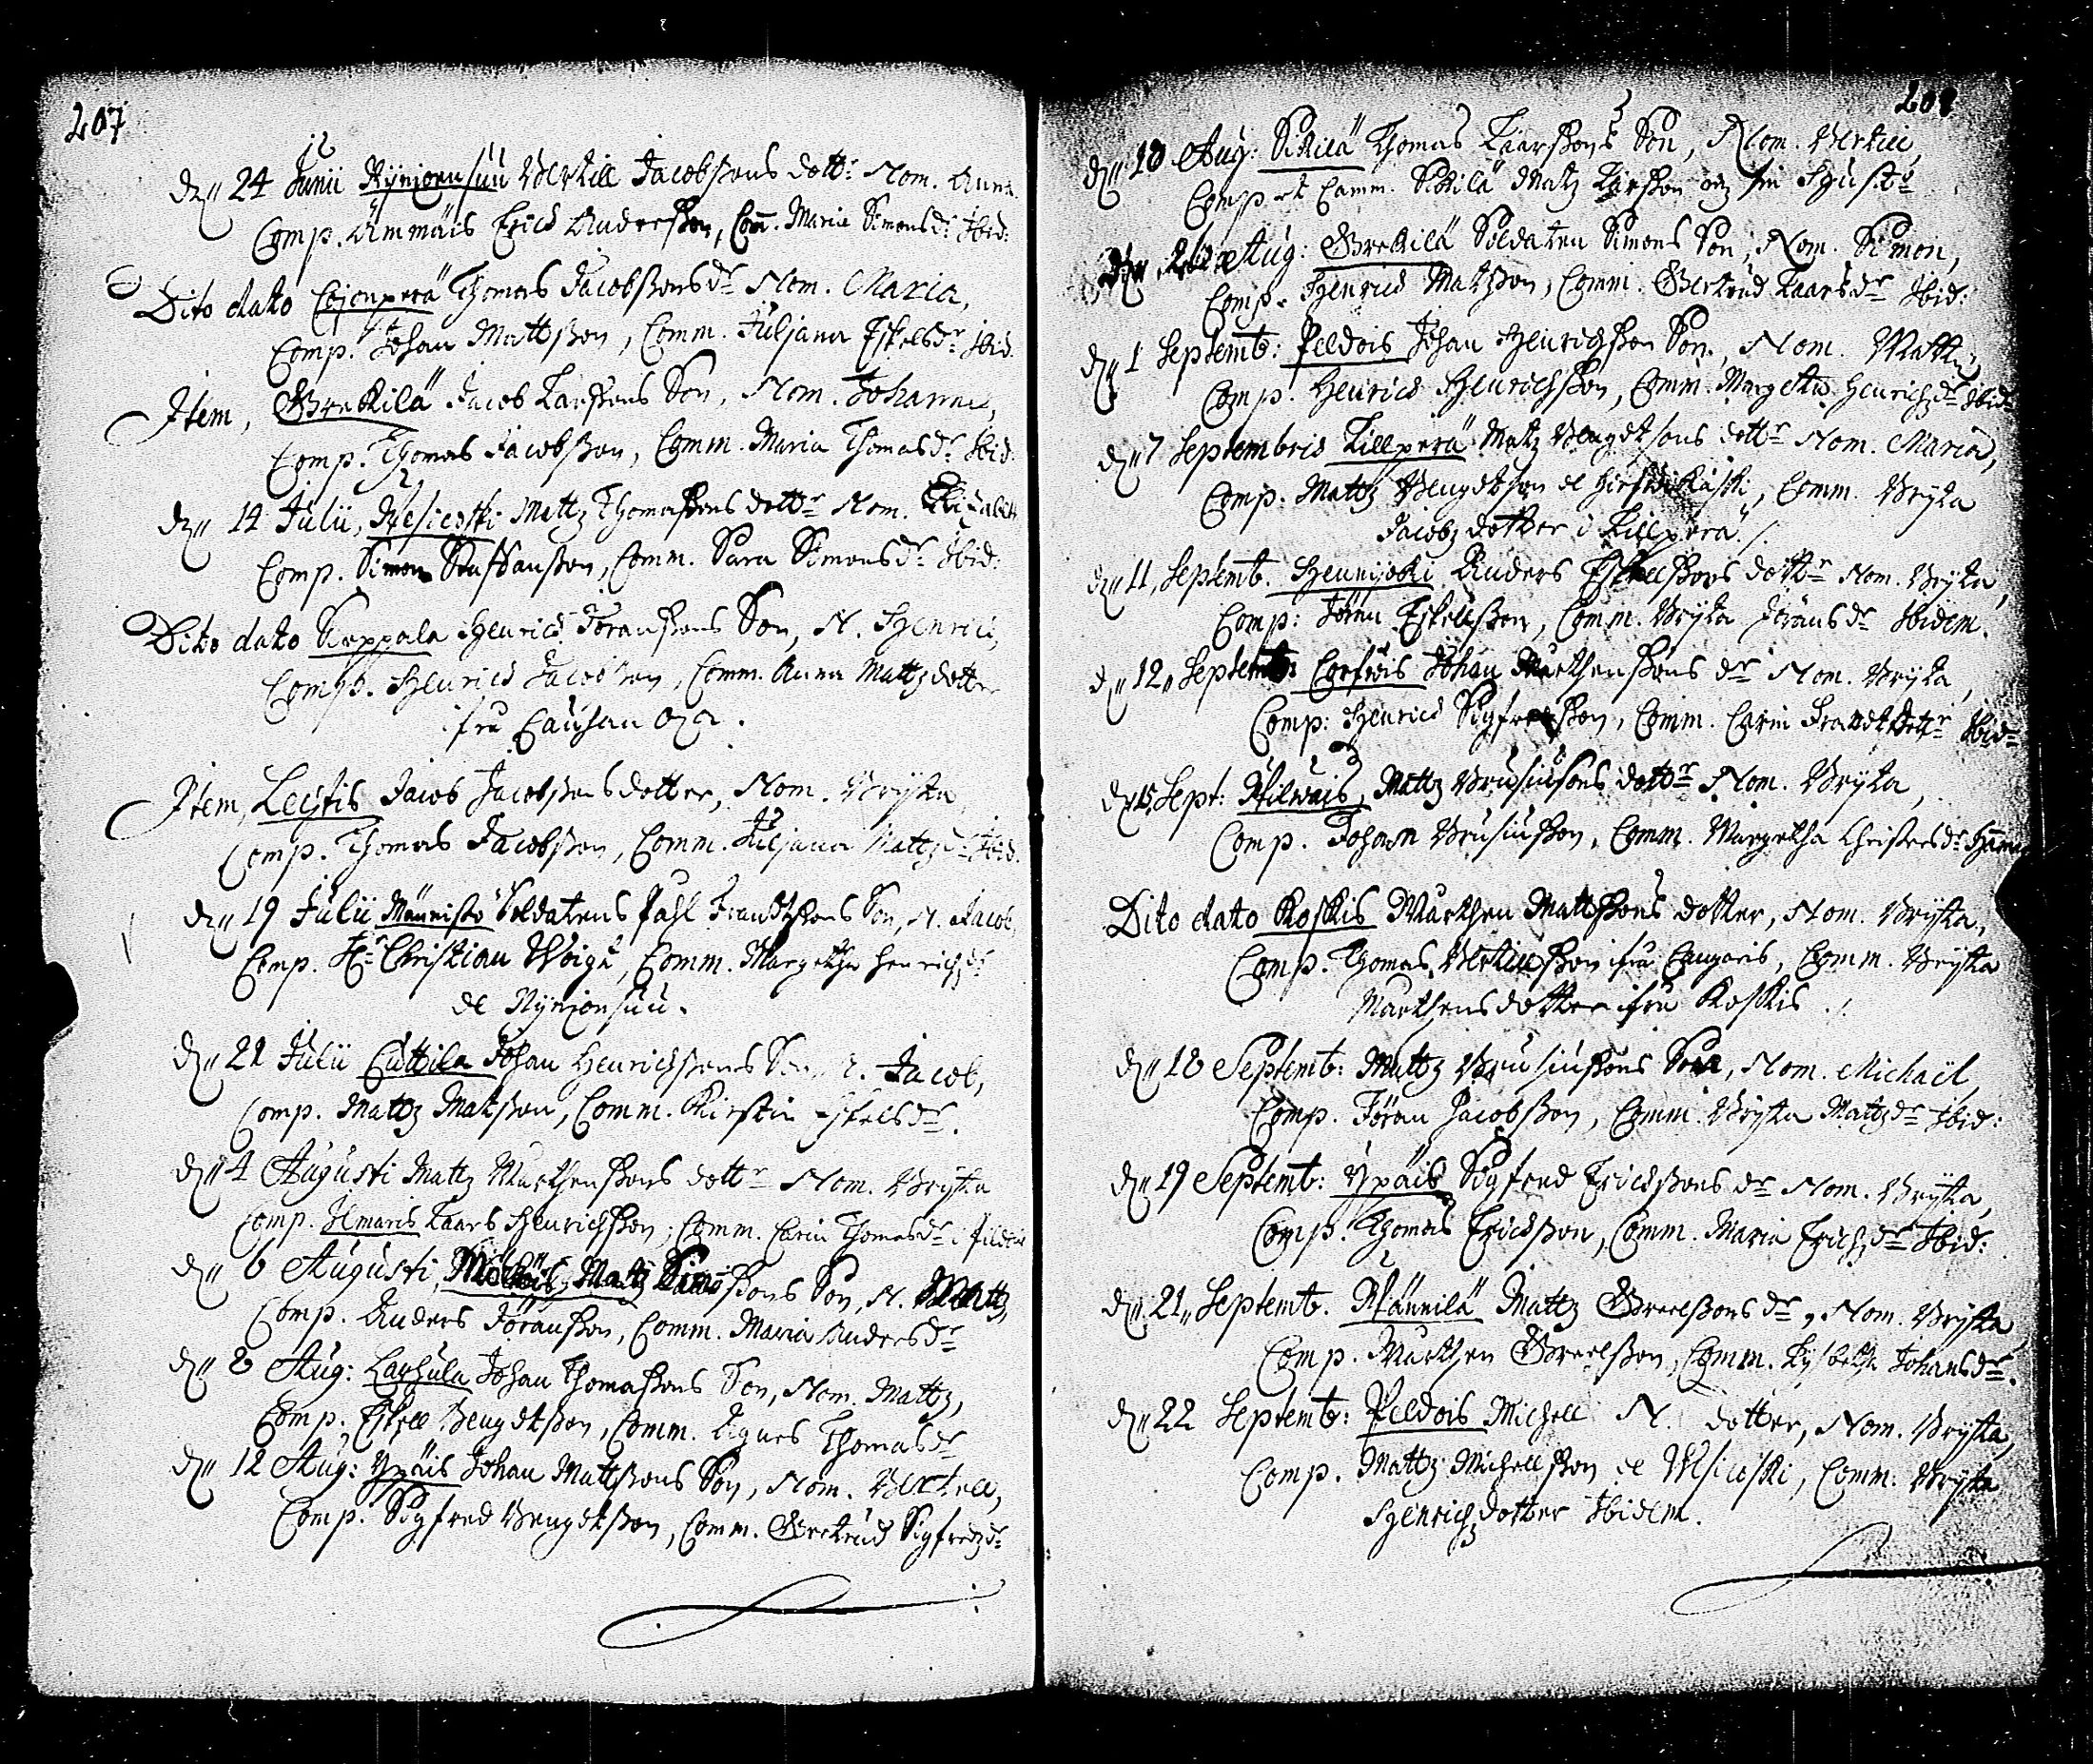 207
dn 24 Junii Nynjoensuu Bertill Jacobßons dottr Nom. Anna
Comp. Ammäis Erich Andersßon, Com. Maria Simonsdr Ibid:
Dito dato Cojonperä Thomas Jacobßons dr Nom. Maria,
Comp. Johan Mattßon, Comm. Juljana Eskelsdr Ibid.
Item, Grekilä Jacob Larßons Son, Nom. Johannes,
Comp. Thomas Jacobßon, Comm. Maria Thomasdr Ibid.
dn 14 Julii, Wesicoski Mattz Thomaßons dottr Nom.
Comp. Simon Staffanßon, Comm. Sara Simonsdr Ibid:
Dito dato Seppala Henrich Jöranßons Son, N. Henrich,
Comp. Henrich Jacobßon, Comm. Anna Mattz dotter
ifrå Cauhanoja.
Item, Leçstis Jacob Jacobßons dotter, Nom. Brijta
Comp. Thomas Jacobßon, Comm. Juljana Mattzdr Ibid.
dn 19 Julii Männistö Soldatens Pahl Frandtzßons Son, N. Jacob,
Comp. Hr Christian Woigt, Comm. Margetha Henrichzdr
de Nynjonsuu.
dn 21 Julii Cuttila Johan Henrichßons Son, N. Jacob,
Comp. Mattz Matßon, Comm. Kirstin Eskelsdr.
dn 4 Augusti Mattz Marthenßons dottr Nom. Brijta
Comp. Ilmaris Laars Henrichßon, Comm. Carin Thomasdr i
dn 6 Augusti, Mattz Simßons Son, N. Mattz,
Comp. Anders Jöranßon, Comm. Maria Andersdr
dn 8 Aug: Layhula Johan Thomaßons Son, Nom. Mattz,
Comp. Eskell Bengdtßon, Comm. Agnes Thomasdr
dn 12 Aug: Ypäis Johan Mattßons Son, Nom. Bertell,
Comp. Sigfred Bengdtßon, Comm. Gertrud Sigfredzdr
208
dn 18 Aug: Sikilä Thomas Laarßons Son, Nom. Bertill,
Comp. et Comm. Sikilä Matz Larßon och sin Hustr
dn Aug: Grekilä Soldaten Simons Son, Nom. Simon,
Comp. Henrich Matzßon, Comm. Gertrud Laarsdr Ibid:
dn 1 Septemb: Peldois Johan Henrichßon Son, Nom. Mattz,
Comp. Henrich Henrichßon, Comm. Margetha Henrichzdr Ibid
dn 7 Septembris Lillperä Matz Bengdtsons dottr Nom. Maria,
Comp. Mattz Bengdtson de, Comm. Brijta
Jacobz dotter i Lillperä.
dn 11, Septemb. Hennijoki Anders Eskellßons dottr Nom. Brijta,
Comp: Jören Eskellßon, Comm. Brijta Jöransdr Ibidem.
dn 12, Septemb: Corfwis Johan Marthenßons dr Nom. Brijta,
Comp: Henrich Sigfredßon, Comm. Carin Frandtz dottr Ibid
dn 15 Sept: Pilwais, Mattz Brusiusons dottr Nom. Brijta,
Comp. Johan Brusiußon, Comm. Margetha Christersdr
Dito dato Koskis Marthen Mattßons dotter, Nom. Brijta,
Comp. Thomas Bertillßon ifrå Cangaris, Comm. Brijta
Marthensdotter ifrå Koskis.
dn 18 Septemb: Mattz Brusiußons Son, Nom. Michaël,
Comp. Jöran Jacobßon, Comm. Brijta Matzdr Ibid:
dn 19 Septemb: Ypäis Sigfred Erichßons dr Nom. Brijta,
Comp. Thomas Erichßon, Comm. Maria Erichzdr Ibid:
dn 21, Septemb. Männilä Mattz Greelßons dr, Nom. Brijta
Comp. Marthen Greelßon, Comm. Lijsbetha Johansdr.
dn 22 Septemb: Peldois Michell N. dotter, Nom. Brijta,
Comp. Mattz Michellßon de Wesicoski, Comm. Brijta
Henrichz dotter Ibidem.